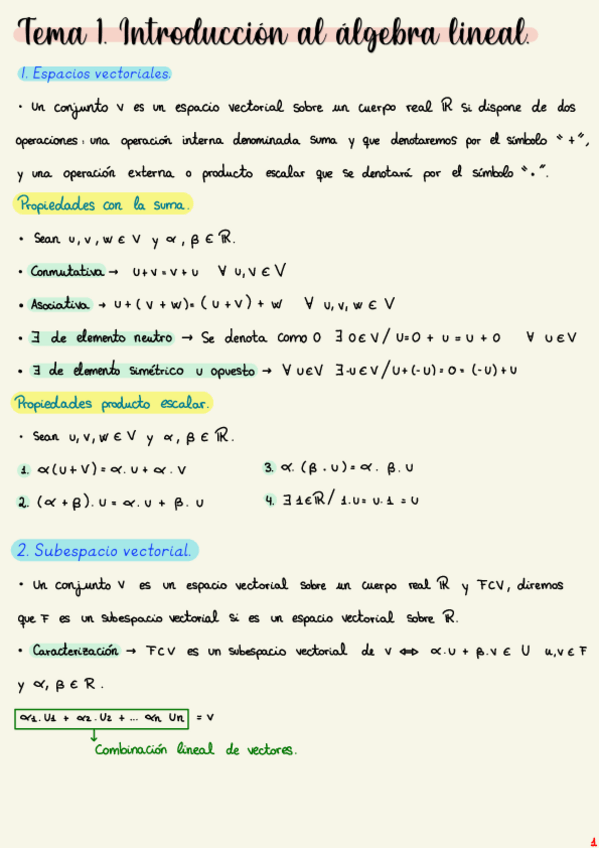 Tema 1. Introducción al álgebra lineal.
1. Espacios vectoriales.
• Un conjunto V es un espacio vectorial sobre un cuerpo real ℝ si dispone de dos
operaciones: una operación interna denominada suma y que denotaremos por el símbolo "+",
y una operación externa o producto escalar que se denotará por el símbolo "·".
Propiedades con la suma.
• Sean u, v, w ∈ V y α, β ∈ ℝ.
• Conmutativa → u+v = v+u ∀ u,v ∈ V
• Asociativa → u+(v+w)=(u+v)+w ∀ u,v,w ∈ V
• ∃ de elemento neutro → Se denota como 0 ∃ 0 ∈ V / u=0+u=u+0 ∀ u ∈ V
• ∃ de elemento simétrico u opuesto → ∀ u ∈ V ∃ -u ∈ V / u+(-u)=0=(-u)+u
Propiedades producto escalar.
• Sean u, v, w ∈ V y α, β ∈ ℝ.
1. α(u+v)=α.u+α.v 3. α.(β.u)=α.β.u
2. (α+β).u=α.u+β.u 4. ∃ 1 ∈ ℝ / 1.u=u.1=u
2. Subespacio vectorial.
• Un conjunto V es un espacio vectorial sobre un cuerpo real ℝ y F⊂V, diremos
que F es un subespacio vectorial si es un espacio vectorial sobre ℝ.
• Caracterización → F⊂V es un subespacio vectorial de V ⟺ α.u+β.v ∈ U u,v ∈ F
y α, β ∈ R.
α1.U1 + α2.U2 + ... αn Un = v
Combinación lineal de vectores.
1